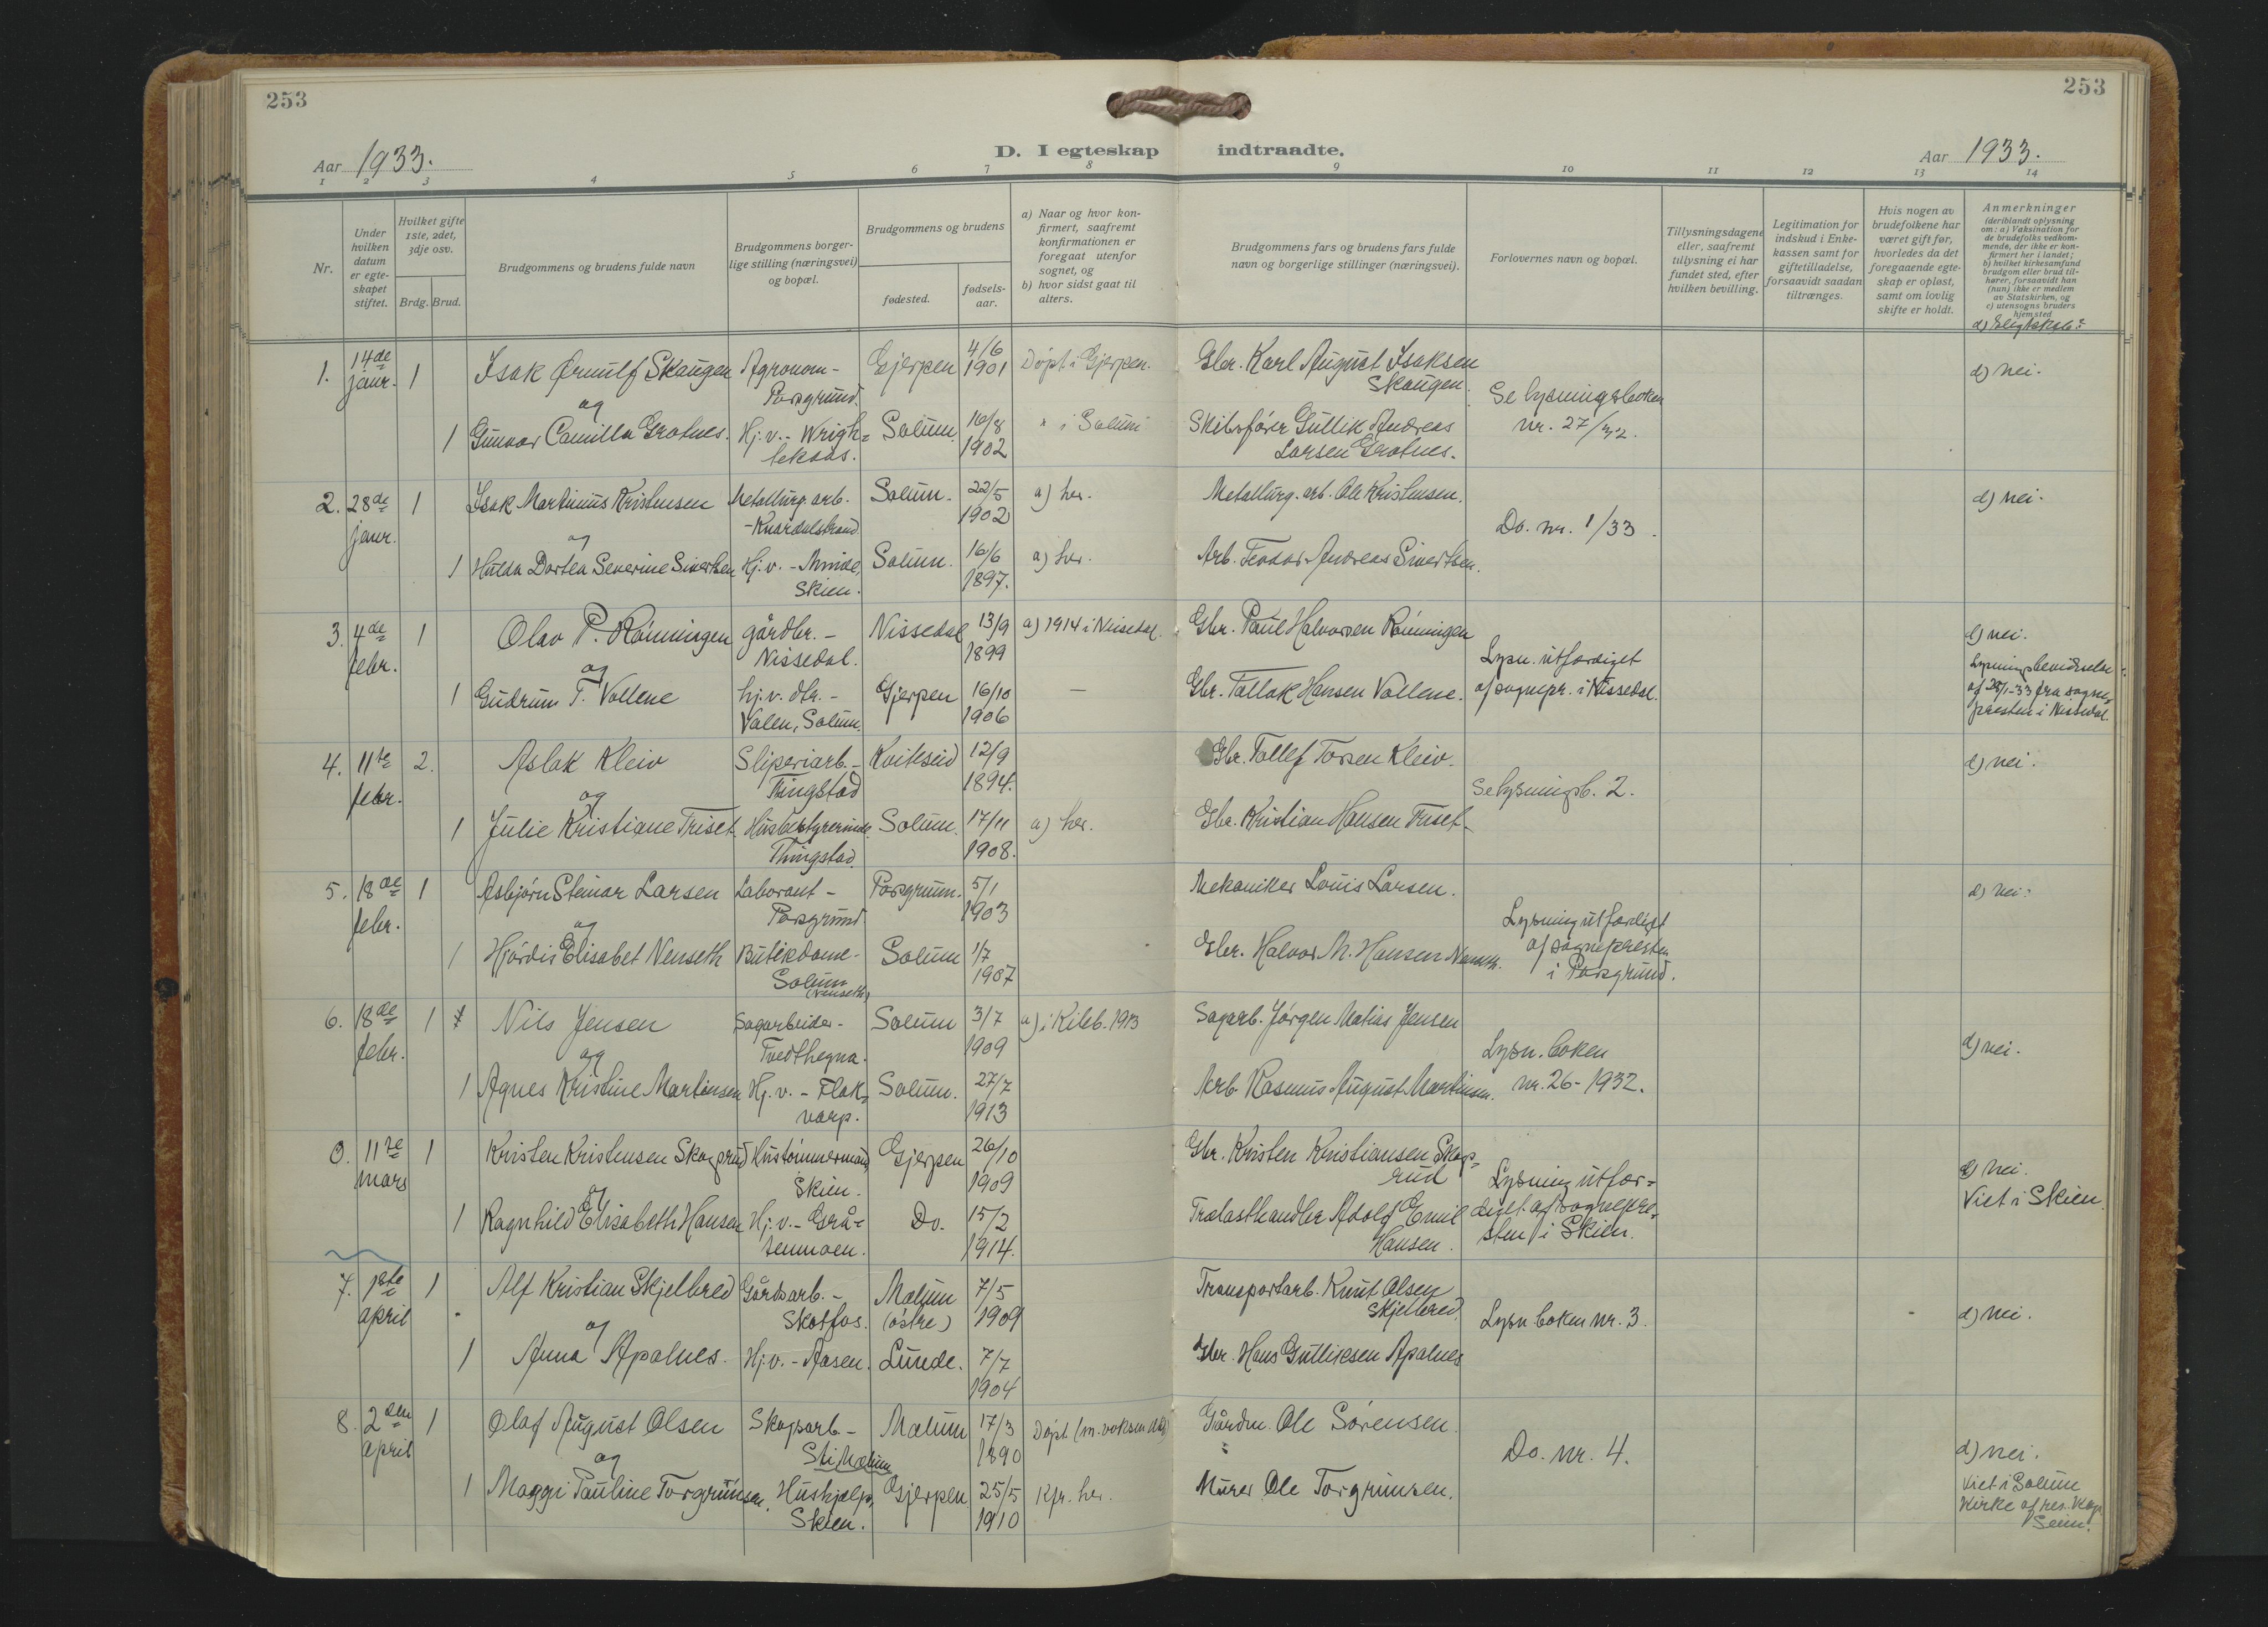 253
253
Aar 1933.
D. I egteskap indtraadte.
Aar 1933.
1 2 3 4 5 6 7 8 9 10 11 12 13 14
Nr.
Under hvilken datum er egteskapet stiftet.
Hvilket gifte 1ste, 2det, 3dje osv.
Brdg. Brud.
Brudgommens og brudens fulde navn
Brudgommens borgerlige stilling (næringsvei) og bopæl.
Brudgommens og brudens
fødested.
fødselsaar.
a) Naar og hvor konfirmert, saafremt konfirmationen er foregaat utenfor sognet, og
b) hvor sidst gaat til alters.
Brudgommens fars og brudens fars fulde navn og borgerlige stillinger (næringsvei).
Forlovernes navn og bopæl.
Tillysningsdagene eller, saafremt tillysning ei har fundet sted, efter hvilken bevilling.
Legitimation for indskud i Enkekassen samt for giftetilladelse, forsaavidt saadan tiltrænges.
Hvis nogen av brudefolkene har været gift før, hvorledes da det foregaaende egteskap er opløst, samt om lovlig skifte er holdt.
Anmerkninger
(deriblandt oplysning om: a) Vaksination for de brudefolks vedkommende, der ikke er konfirmert her i landet;
b) hvilket kirkesamfund brudgom eller brud tilhører, forsaavidt han (hun) ikke er medlem av Statskirken, og
c) utensogns bruders hjemsted
1. 14de janr. 1 Isak Ørnulf Skaugen Agronom - Porsgrund. Gjerpen 4/6 1901 Döpt i Gjerpen. Gbr. Karl August Isaksen Skaugen. d) nei.
og
Se lysningsboken nr. 27/32.
1 Gunvor Camilla Grotnes. Hj.v. - Wrighlekaas. Solum. 10/8 1902 " i Solum Skibsförer Gullik Andreas Larsen Grotnes.
2. 28de janr. 1 Isak Martinius Kristensen Metallurg. arb. - Knardalstrand Solum. 22/5 1902 a) her. Metallurg. arb. Ole Kristensen. d) nei.
og
Do. nr. 1/33.
1 Hulda Dortea Severine Sivertsen Hj.v. - Minde, Skien. Solum. 16/6 1897. a) her. Arb. Teodor Andreas Sivertsen.
3. 4de febr. 1 Olav P. Rönningen gårdbr. - Nissedal. Nissedal 13/9 1899 a) 1914 i Nissedal. Gbr. Paul Halvorsen Rönningen d) nei.
og
Lysn. utfærdiget af sognepr. i Nissedal.
1 Gudrun T. Vollene hj.v. dtr. - Valen, Solum. Gjerpen 16/10 1906 — Gbr. Tallak Hansen Vollene.
fra sogne-presten i Nissedal.
4. 11te febr. 2. Aslak Kleiv Sliperiarb. - Tingstad Kviteseid 12/9 1894. Gbr. Tollef Torsen Kleiv. d) nei.
og
Se lysningsb. 2.
1 Julie Kristiane Triset Husbestyrerinde. Thingstad. Solum. 17/11 1908. a) her. Gbr. Kristian Hansen Triset
5. 18de febr. 1 Asbjørn Steinar Larsen Laborant - Porsgrund Porsgrunn. 5/1 1903 Mekaniker Louis Larsen. d) nei.
og
Lysning utfærdiget af sognepresten i Porsgrund.
1 Hjördis Elisabet Nenseth Butikdame - Solum (Nenseth) Solum 1/7 1907 Gbr. Halvor M. Hansen Nenseth.
6. 18de febr. 1 Nils Jensen Sagarbeider - Tvedthegna. Solum 3/7 1909 a) i Kileb. 1913 Sagarb. Jörgen Matias Jensen d) nei.
og
Lysn. boken nr. 26 - 1932.
1 Agnes Kristine Martinsen Hj.v. - Flakvarp. Solum. 27/7 1913 Arb Rasmus August Martinsen.
0. 11te mars 1 Kristen Kristensen Skogrud Hustömmermand Skien. Gjerpen 26/10 1909 Gbr. Kristen Kristiansen Skogrud d) nei.
og
Lysning utfærdiget af sognepresten i Skien. Viet i Skien.
1 Ragnhild Elisabeth Hansen Hj.v. - Gråtenmoen. Do. 15/2 1914. Trælasthandler Adolf Emil Hansen.
7. 1ste april 1 Alf Kristian Skjelbred Gårdsarb. - Skotfos. Mælum (östre) 7/5 1909 Transportarb. Knut Olsen Skjelbred. d) nei.
og
Lysn boken nr. 3.
1 Anna Apalnes. Hj.v. - Aasen. Lunde. 7/7 1904 Gbr. Hans Gulliksen Apalnes
8. 2den april 1 Olaf August Olsen Skogsarb - Sti Mælum Mælum 17/3 1890 Döpt Gårdm. Ole Sörensen
og
Do. nr. 4. d) nei.
1 Maggi Pauline Torgrimsen. Hushjælp, Skien. Gjerpen 25/5 1910 Kfr. her. Murer Ole Torgrimsen.
Viet i Solum Kirke af res. Kap. Seim.